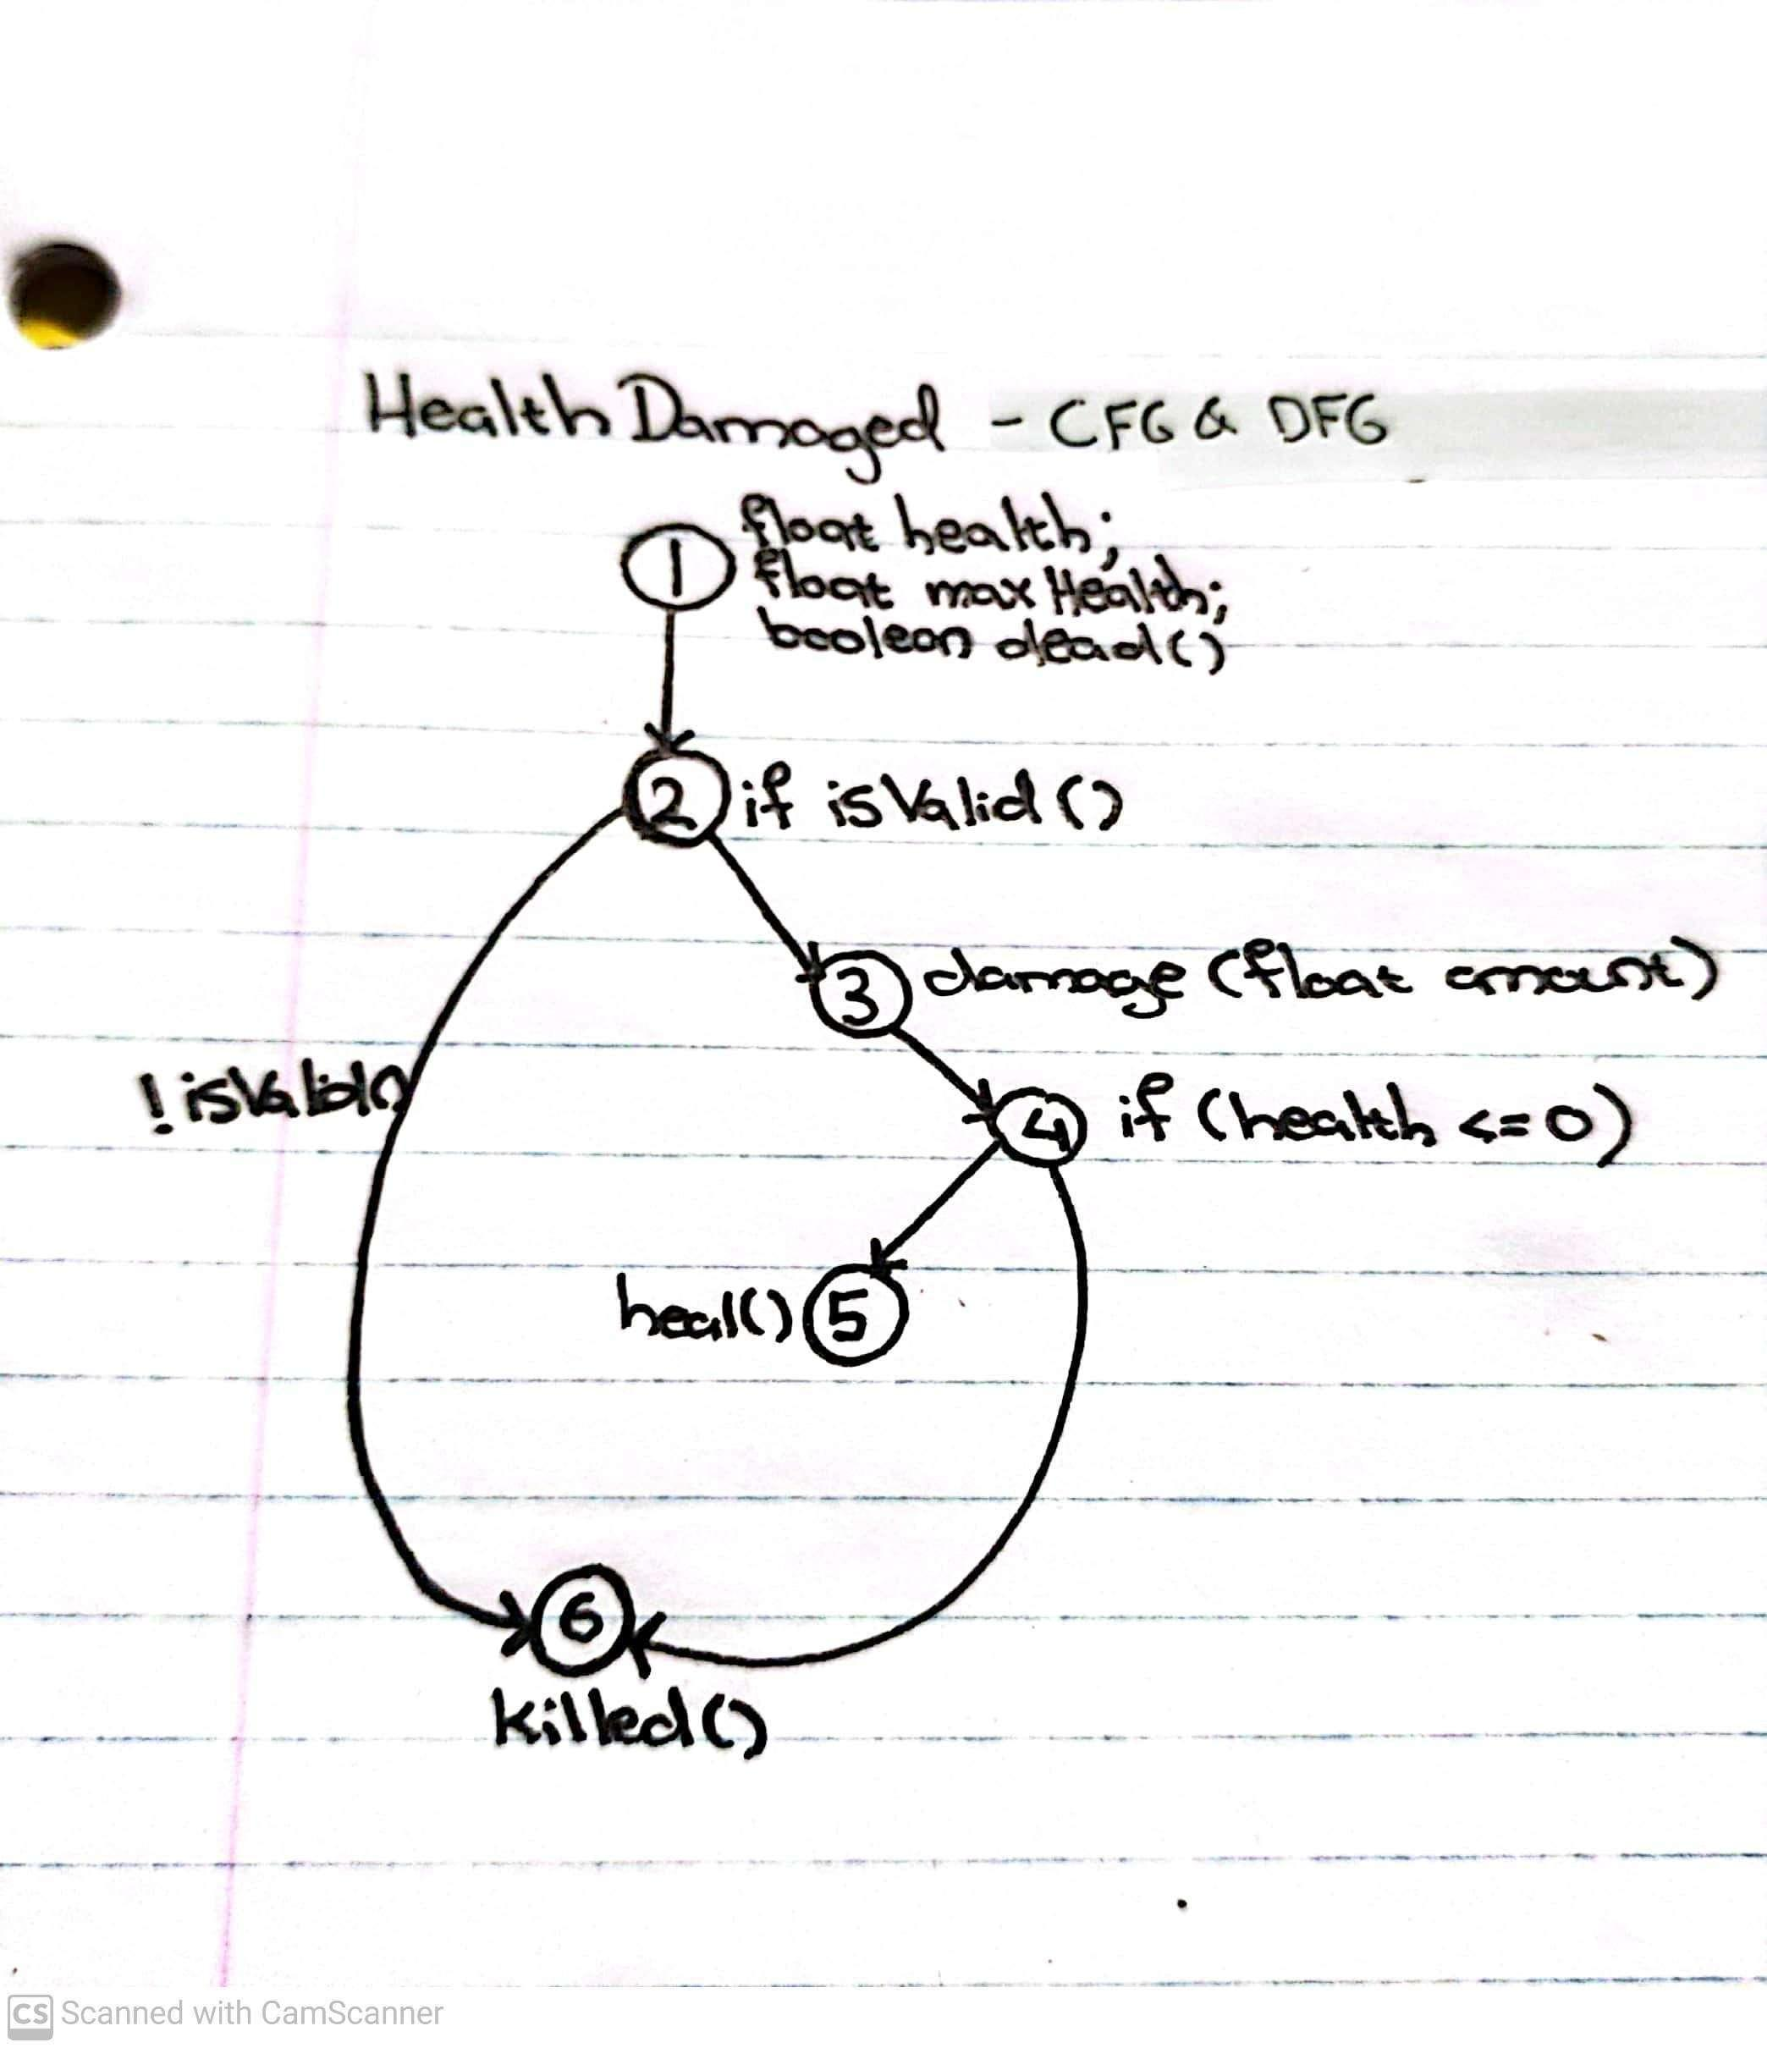 Health Damaged - CFG & DFG
1 float health;
float maxHealth;
boolean dead()
2 if isValid()
3 damage (float amount)
!isValid()
4 if (health <=0)
heal() 5
6
killed()
CS Scanned with CamScanner